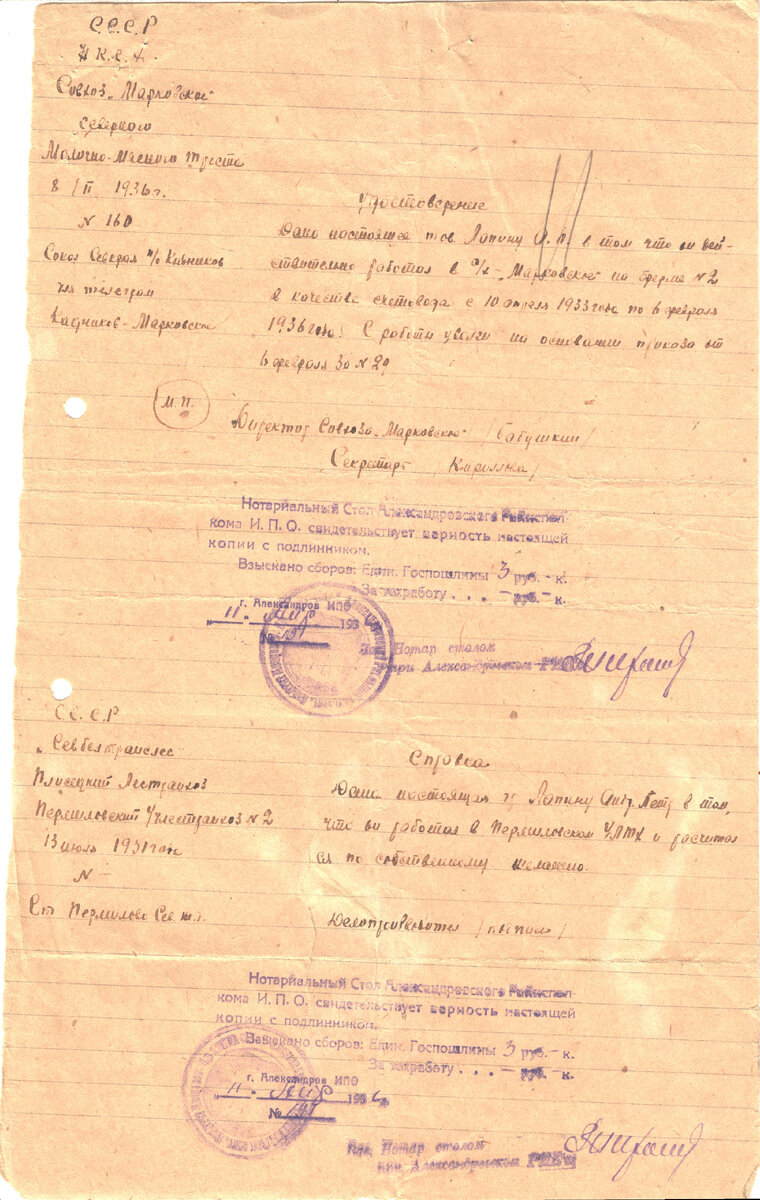 С.С.С.Р
Н К.С.Х.
Совхоз „Марковское"
Северного
Молочно-Мясного треста
8/II 1936 г.
N 160
Союз Северол п/о Кадников
для телеграм
Кадников-Марковское
Удостоверение
Дано настоящее тов. Лапину А.П. в том что он дей-
ствительно работал в с/х-„Марковское" на ферме N2
в качестве счетовода с 10 апреля 1933 года по 6 февраля
1936 года. С работы уволен на основании приказа от
6 февраля за N 29
М.П.
Директор Совхоза „Марковское" /Бабушкин/
Секретарь /Кириллова/
Нотариальный Стол Александровского Райиспол-
кома И.П.О. свидетельствует верность настоящей
копии с подлинником.
Взыскано сборов: Един. Госпошлины 3 руб.- к.
За техработу . . . - руб.- к.
г. Александров ИПО
„ 11 " 193
№ 191
Зав. Нотар столом
при Александровском РИКе
С.С.С.Р
„Севвостранслес"
Плисецкий Лестранхоз
Пермиловский Учлестранхоз N 2
13 июля 1931 года
N —
Ст Пермилово Сев ж.д.
Справка
Дана настоящая гр Лапину Андр. Петр в том,
что он работал в Пермиловском УЛТХ и расчитал
ся по собственному желанию.
Делопроизводитель /подпись/
Нотариальный Стол Александровского Райиспол-
кома И.П.О. свидетельствует верность настоящей
копии с подлинником.
Взыскано сборов: Един. Госпошлины 3 руб.- к.
За техработу . . . - руб.- к.
г. Александров ИПО
„ 11 " 1936 г.
№ 191
Зав. Нотар столом
при Александровском РИКе